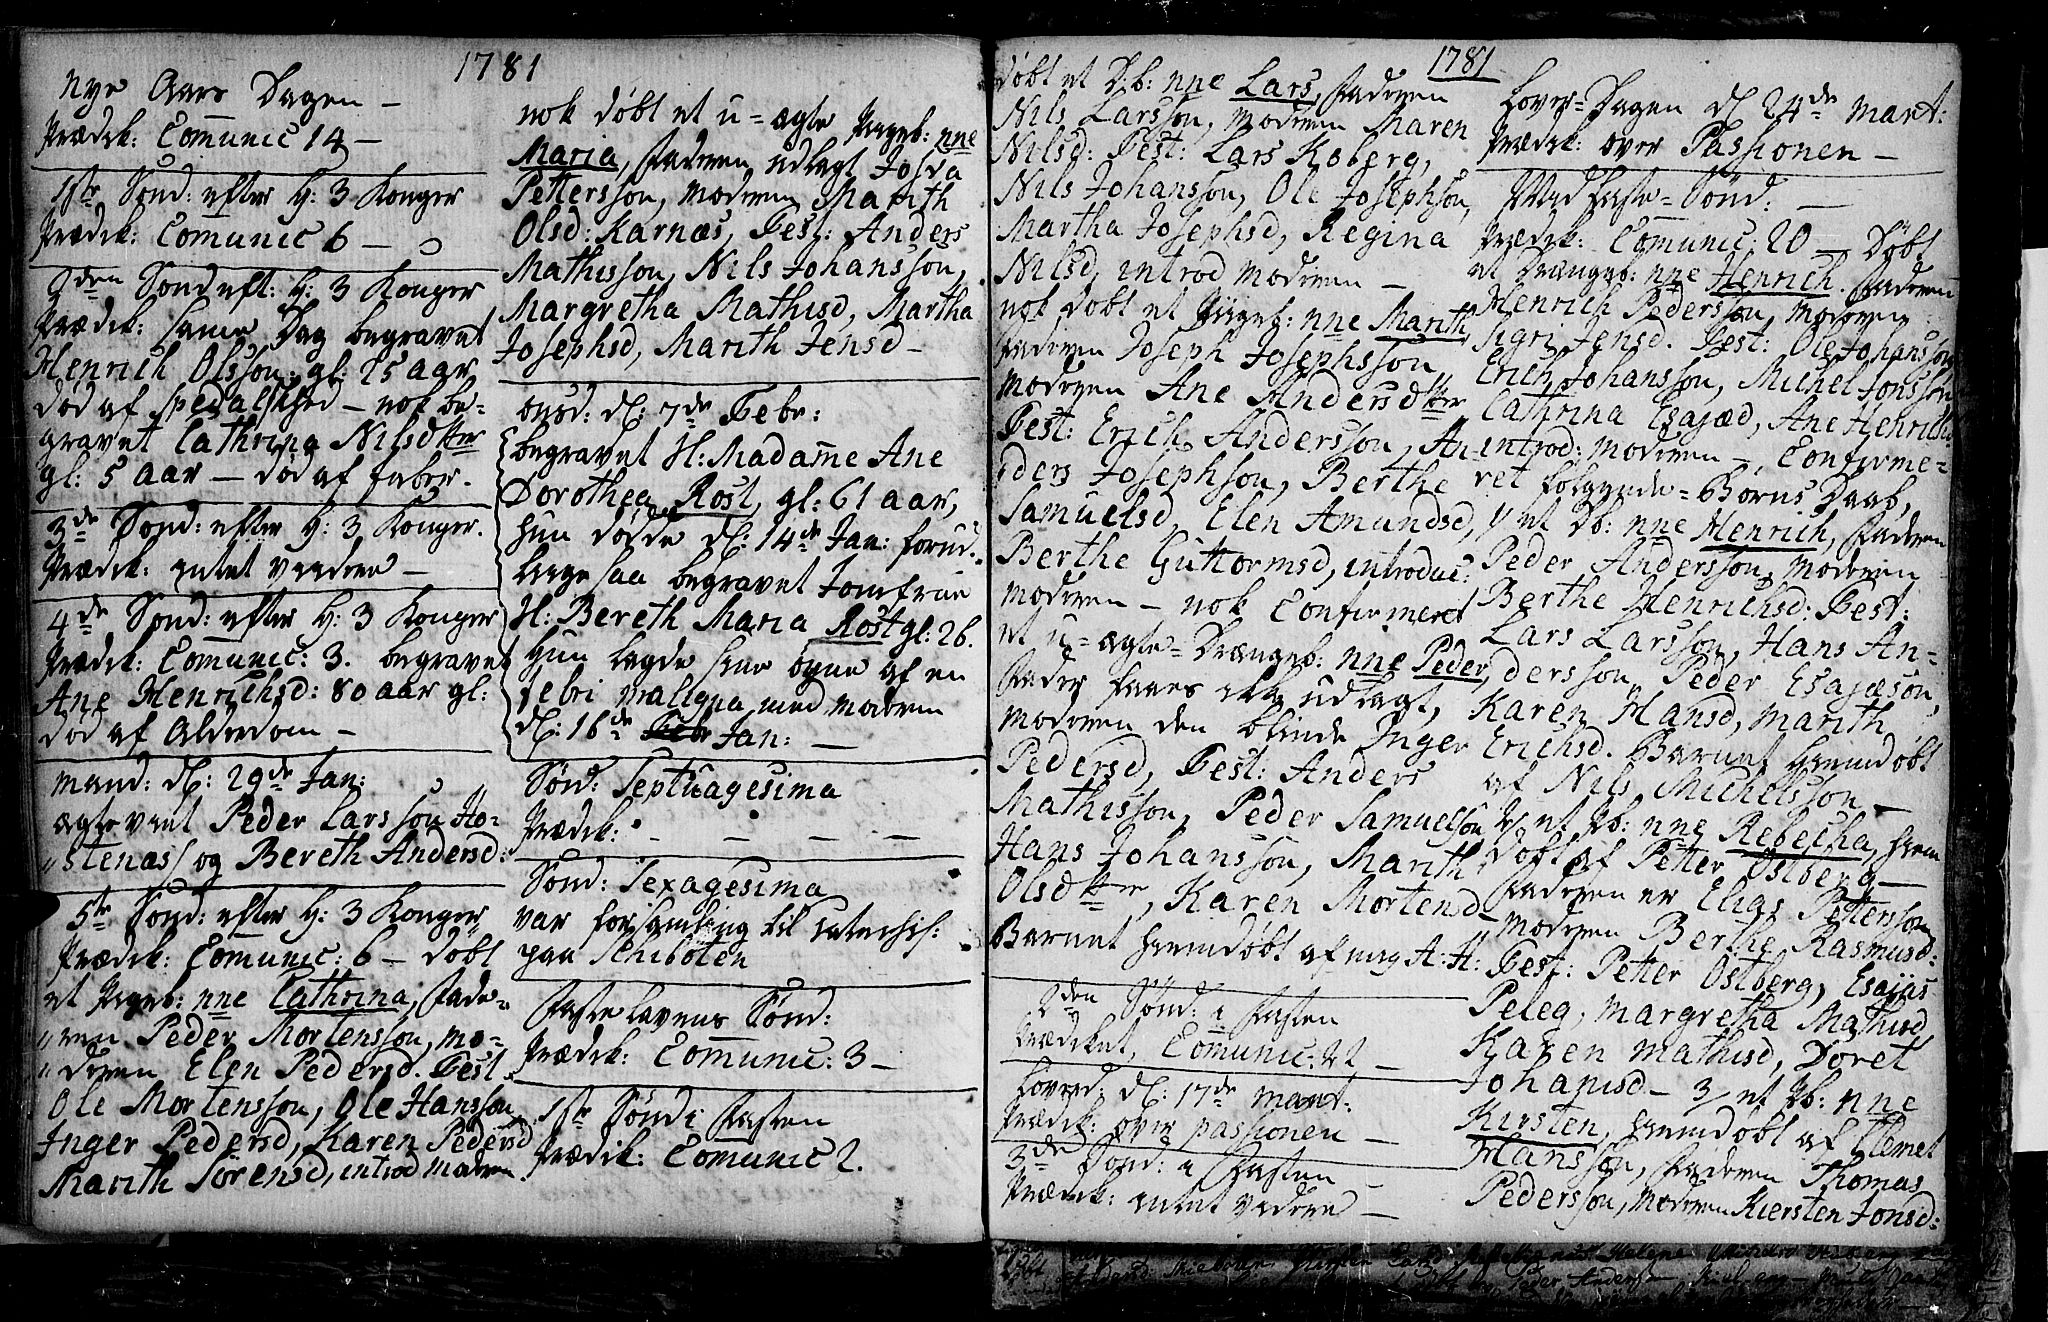 1781
Nye Aars Dagen –
Prædik: Comunic 14 –
1ste Sønd: efter H: 3 Konger
Prædik: Comunic 6 –
2den Sønd eft: H: 3 Konger
Prædik: same Dag begravet
Henrich Olsson, gl: 25 aar
død af spedalskhed – nok be-
gravet Cathrina Nilsdtter
gl: 5 aar – død af feber.
3de Sønd: efter H: 3 Konger.
Prædik: intet videre –
4de Sønd: efter H: 3 Konger
Prædik: Comunic: 3. begravet
Ane Henrichsd: 80 aar gl:
død af Alderdom –
Mand: d: 29de Jan:
ægteviet Peder Larsson Ho-
"stenæs/ og Bereth Andersd:
5te Sønd: efter H: 3 Konger
Prædik: Comunic: 6 – døbt
et Pigeb: nne Cathrina, Fade-
"ren Peder Mortensson, mo-
"deren Elen Pedersd. Test:
Ole Mortensson, Ole Hansson,
Inger Pedersd, Karen Pedersd
Marith Sørensd, introd moderen
nok døbt et u-ægte Pigeb: nne
Maria, Faderen udlagt Josva
Pettersson, moderen Marith
Olsd: Karnæs, Test: Anders
Mathisson, Nils Johansson,
Margretha Mathisd, Martha
Josephsd, Marith Jensd –
Onsd: d: 7de Febr:
begravet H: Madame Ane
Dorothea Rost, gl: 61 aar,
hun døde d: 14de Jan: forud.
ligesaa begravet Jomfrue
H: Bereth Maria Rost gl: 26.
Hun lagde sine øyne af en
febri maligna med moderen
d: 16de Febr Jan: –
Sønd: Septuagesima
Prædik: – – – –
Sønd: Sexagesima
var forsamling til catechis:
paa Schiboten
Fastelavens Sønd:
Prædik: Comunic: 3 –
1ste Sønd i Fasten
Prædik: Comunic 2.
1781
døbt et Db: nne Lars, Faderen
Nils Larsson, moderen Maren
Nilsd: Test: Lars Koberg,
Nils Johansson, Ole Josephson,
Martha Josephsd, Regina
Nilsd, introd moderen –
nok døbt et Pigeb: nne Marith
Faderen Joseph Josephsson,
moderen Ane Andersdtter
Test: Erich Andersson, An-
ders Josephson, Berthe
Samuelsd, Elen Amundsd,
Berthe Guttormsd, introduc:
moderen – nok Confirmeret
et u-ægte-Drængeb: nne Peder,
Fader faaes ikke udlagt,
moderen den blinde Inger
Pedersd, Test: Anders
Mathisson, Peder Samuelson
Hans Johansson, Marith
Olsdtter, Karen Mortensd –
Barnet hiemdøbt af mag A: H:
2den Sønd: i Fasten
Prædiket, Comunic: 22 –
Løverd: d: 17de Mart:
Prædik: over passionen –
3de Sønd: i Fasten –
Prædik: intet videre –
Løver-Dagen d 24de Mart:
Prædik: over Passionen –
Midfaste-Sønd: –
Prædik: Comunic: 20 – Døbt
et Drængeb: nne Henrich. Faderen
Henrich Pedersson, moderen
Sigri Jensd. Test: Ole Johansson
Erich Johansson, Michel Jonsson
Cathrina Esajæd, Ane Henrichsd
introd: moderen –, Confirme-
ret følgende-Børns Daab,
1/ et Db: nne Henrich, Faderen
Peder Andersson, moderen
Berthe Henrichsd: Test:
Lars Larsson, Hans An-
dersson, Peder Esajæson,
Karen Hansd, Marith
Erichsd. Barnet hiemdøbt
af Nils Michelsson –
2/ et Pb: nne Rebecha, hiem
døbt af Petter Ostberg –
Faderen er Elias Pettersson
moderen Berthe Rasmusd:
Test: Petter Ostberg, Esajas
Peleg, Margretha Mathisd
Karen Mathisd, Doret
Johanisd – 3/ et Pb: nne
Kirsten, hiemdøbt af Clemet
Hansson, Faderen Thomas
Pedersson, moderen Kiersten Jonsd: